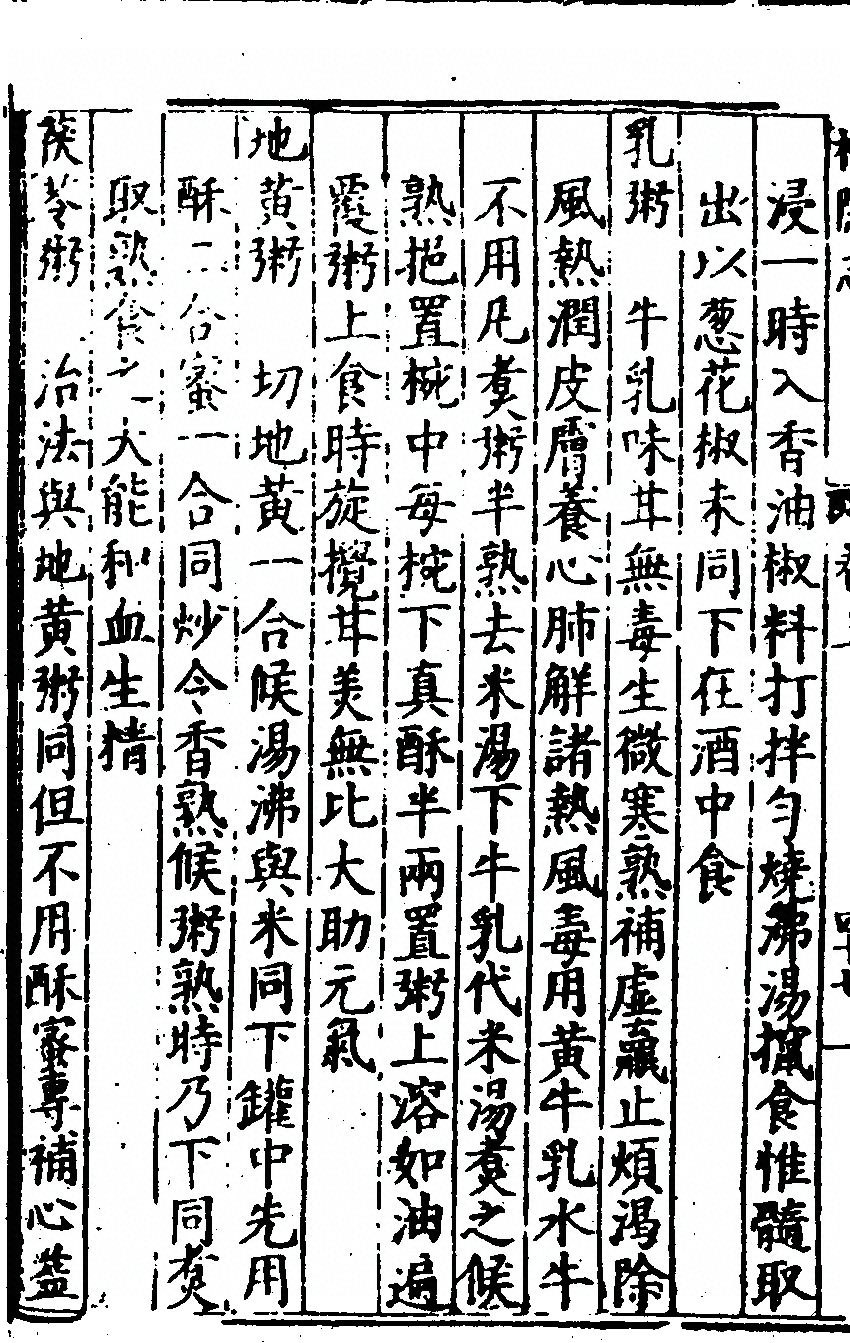 浸一時入香油椒料打拌勻燒沸湯攛食惟髓取
出以葱花椒末同下在酒中食
乳粥　牛乳味甘無毒生微寒熟補虛羸止煩渴除
風熱潤皮膚養心肺解諸熱風毒用黄牛乳水牛
不用凡煑粥半熟去米湯下牛乳代米湯煑之候
熟挹置椀中每椀下真酥半兩置粥上溶如油遍
覆粥上食時旋攪甘美無比大助元氣
地黄粥　切地黄一合候湯沸與米同下罐中先用
酥二合蜜一合同炒令香熟候粥熟時乃下同煑
取熟食之大能和血生精
茯苓粥　治法與地黄粥同但不用酥蜜專補心益